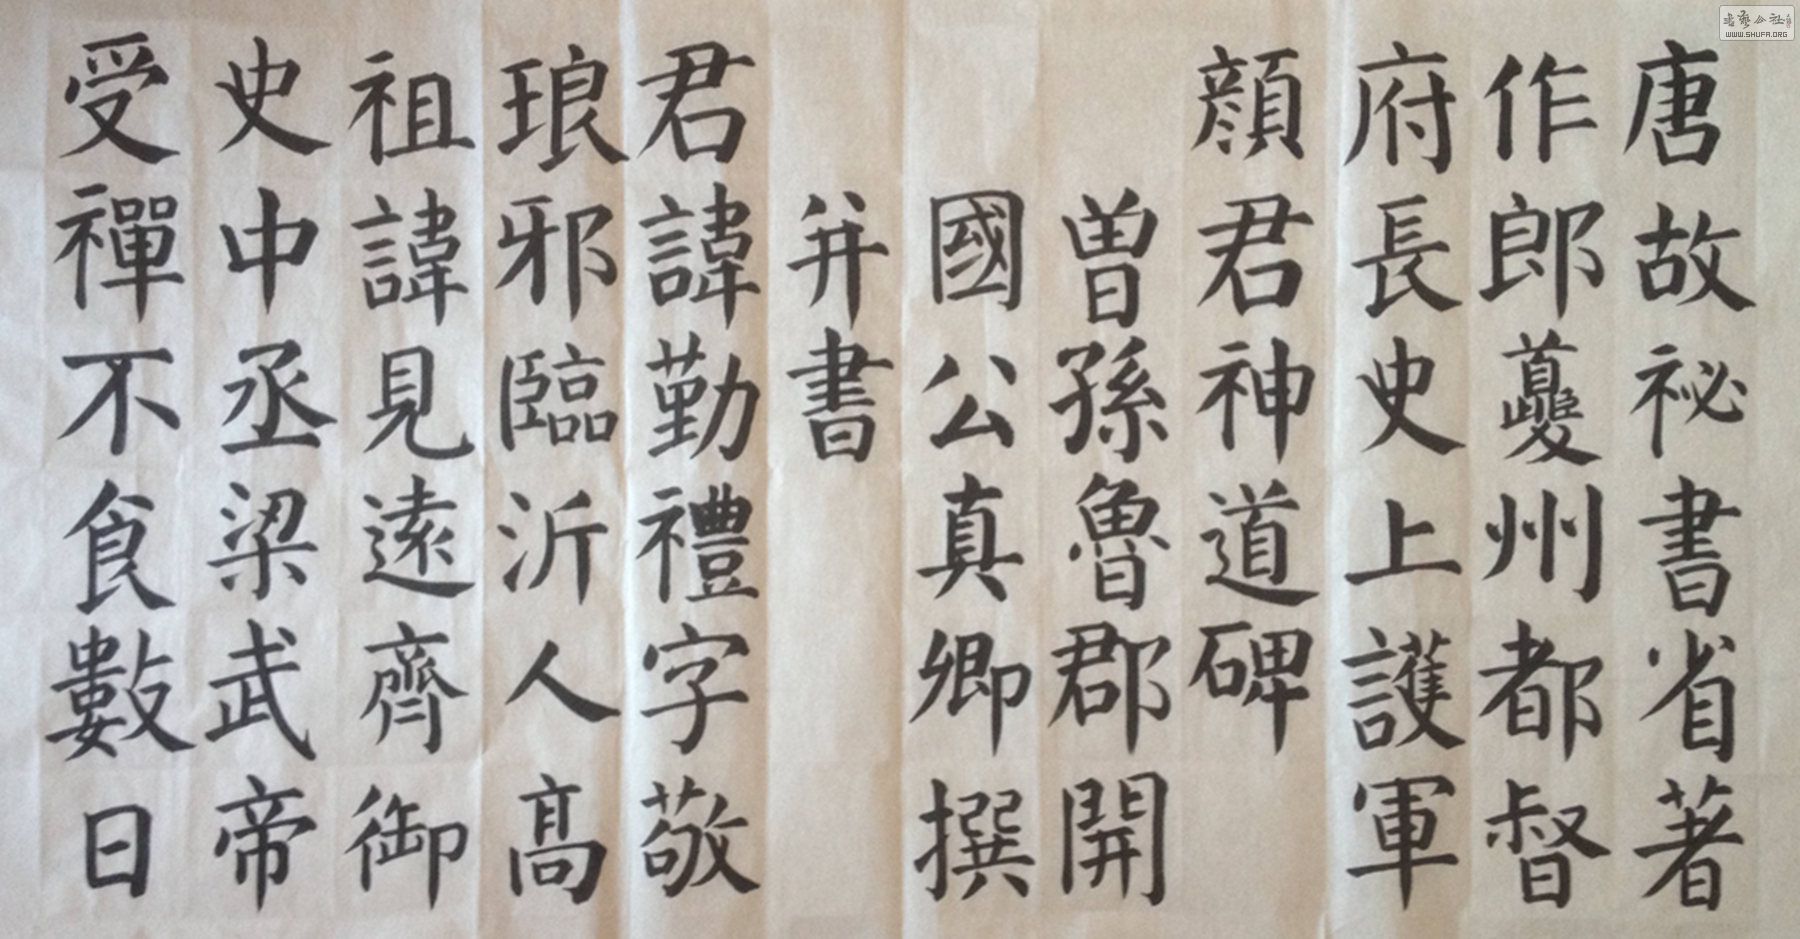 唐故祕書省著
作郎夔州都督
府長史上護軍
顏君神道碑
曾孫魯郡開
國公真卿撰
并書
君諱勤禮字敬
琅邪臨沂人高
祖諱見遠齊御
史中丞梁武帝
受禪不食數日
書法公社
WWW.SHUFA.ORG